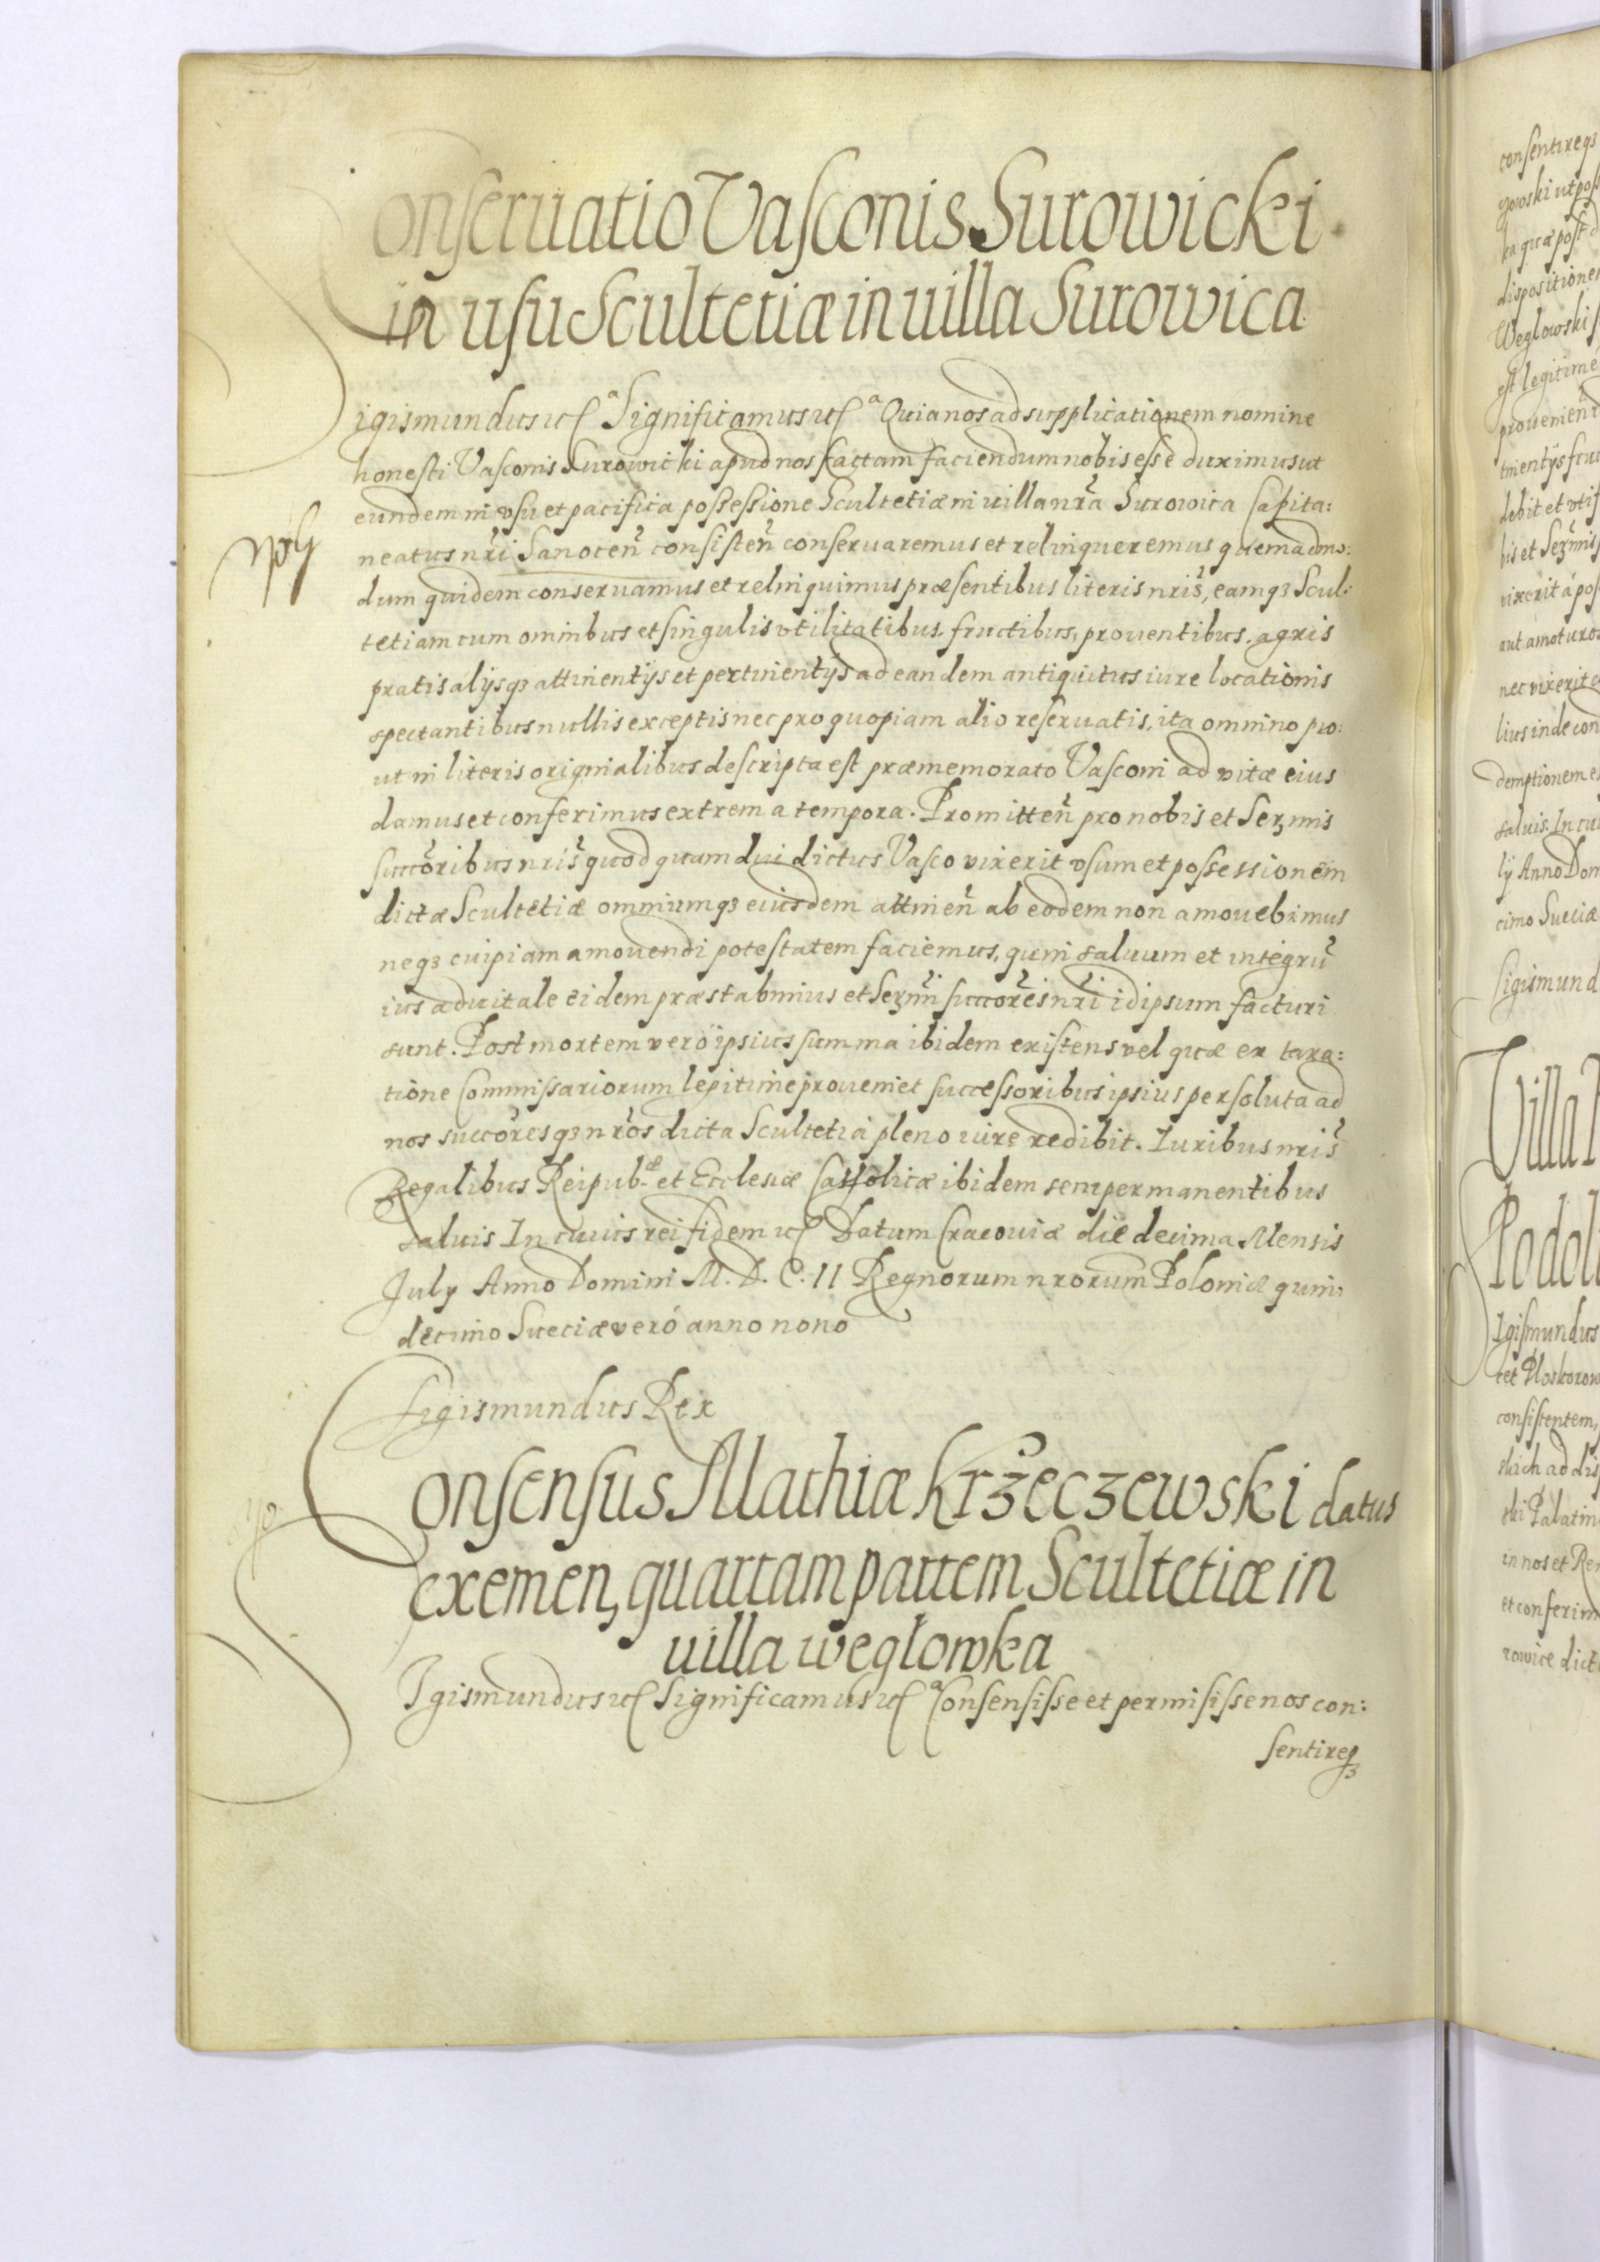 Conseruatio Vasconis Surowicki
in usu Scultetiæ in uilla Surowica
Sigismundus etc. Significamus etc. Quia nos ad supplicationem nomine
honesti Vasconis Surowicki apud nos factam faciendum nobis esse duximus ut
eundem in vsu et pacifica possessione Scultetiæ in uilla nr̃a Surowica Capita:
neatus nr̃i Sanocen̄ consisten̄ conseruaremus et relinqueremus quemadmo:
dum quidem conseruamus et relinquimus præsentibus literis nr̃is, eamq3 Scul:
tetiam cum omnibus et singulis vtilitatibus, fructibus, prouentibus, agris
pratis alijsq3 attinentijs et pertinentijs ad eandem antiquitus iure locationis
spectantibus nullis exceptis nec pro quopiam alio reseruatis, ita omnino pro:
ut in literis originalibus descripta est præmemorato Vasconi ad vitæ eius
damus et conferimus extrema tempora. Promitten̄ pro nobis et Serẽmis
succõribus nr̃is quod quam diu dictus Vasco vixerit vsum et possessionem
dictæ Scultetiæ omniumq3 eiusdem attinen̄ ab eodem non amouebimus
neq3 cuipiam amouendi potestatem faciemus, quin saluum et integrũ
ius aduitale eidem præstabimus et Serẽmi succõres nr̃i idipsum facturi
sunt. Post mortem vero ipsius summa ibidem existens vel quæ ex taxa:
tione Commissariorum legitime proueniet successoribus ipsius persoluta ad
nos succõresq3 nr̃os dicta Scultetia pleno iure redibit. Iuribus nr̃is
Regalibus Reipub.æ et Ecclesiæ Catholicæ ibidem semper manentibus
saluis In cuius rei fidem etc. Datum Cracouiæ die decima Mensis
July Anno Domini M. D. C. II Regnorum nrorum Poloniæ quin:
decimo Sueciæ veró anno nono
Sigismundus Rex
Consensus Mathiæ Krżeczewski datus
exemen, quartam partem Scultetiæ in
uilla weglowka
Sigismundus etc. Significamus etc. Consensisse et permisisse nos con:
sentireq3
consentireq3
dispositionem
Weglowski
est legitime
debit et
vixerit
nec vixerit
lius inde con
demptionem
saluis. In cui
ly Anno Dom
cimo Sueciæ
Sigismund
Villa
Podol
Igismundus
consistentem,
Palatin
in nos et
et conferim
rowice dict